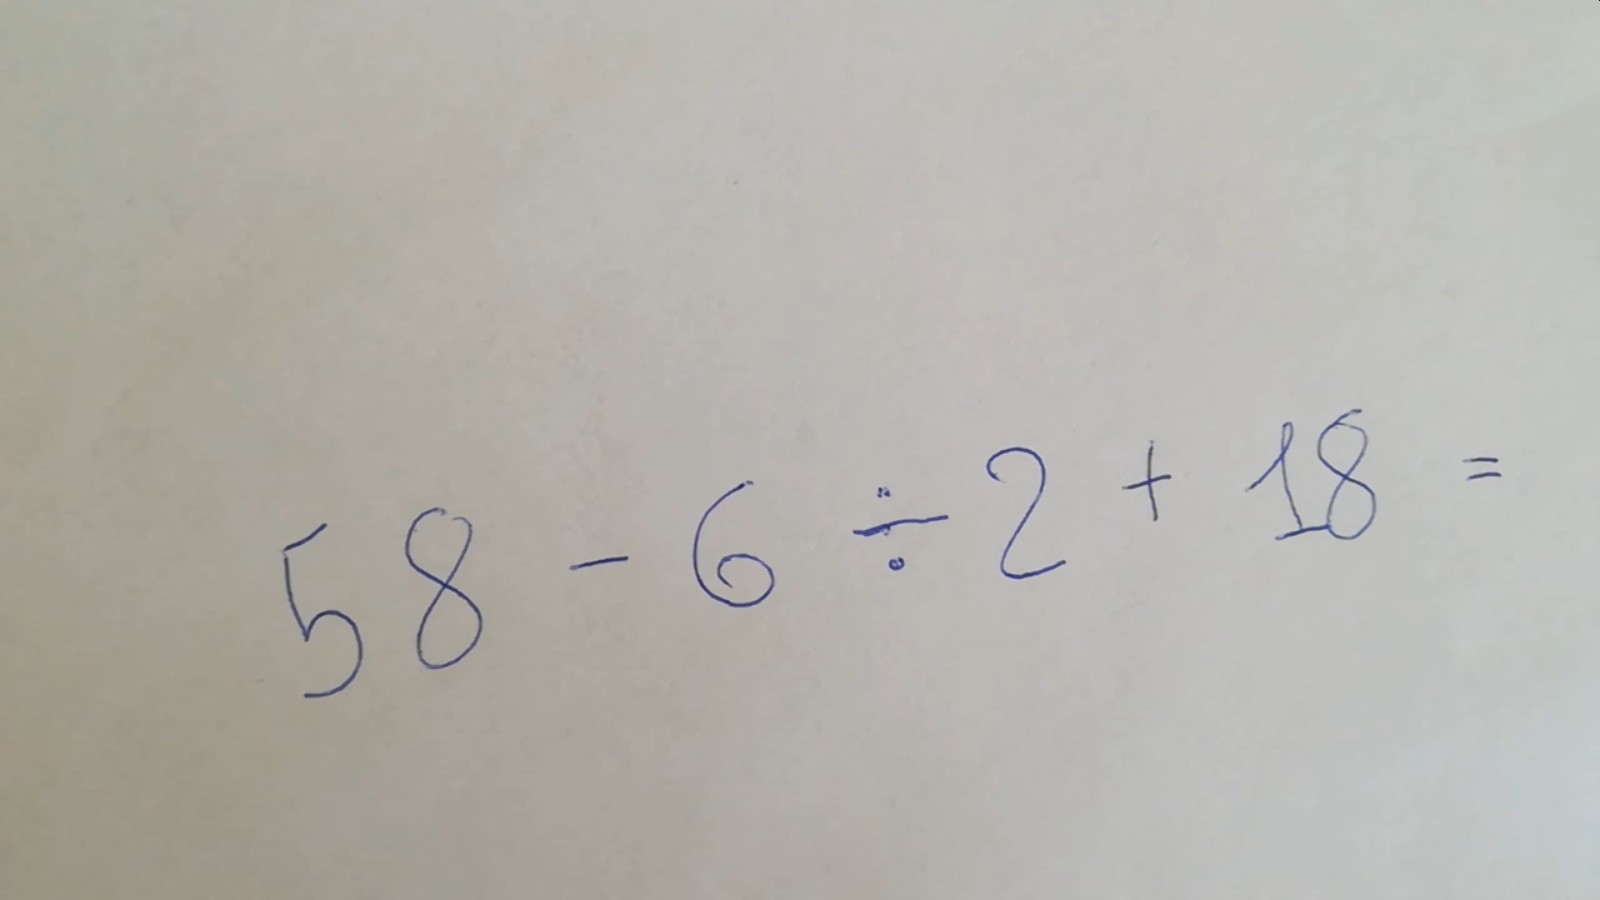 58 - 6 ÷ 2 + 18 =